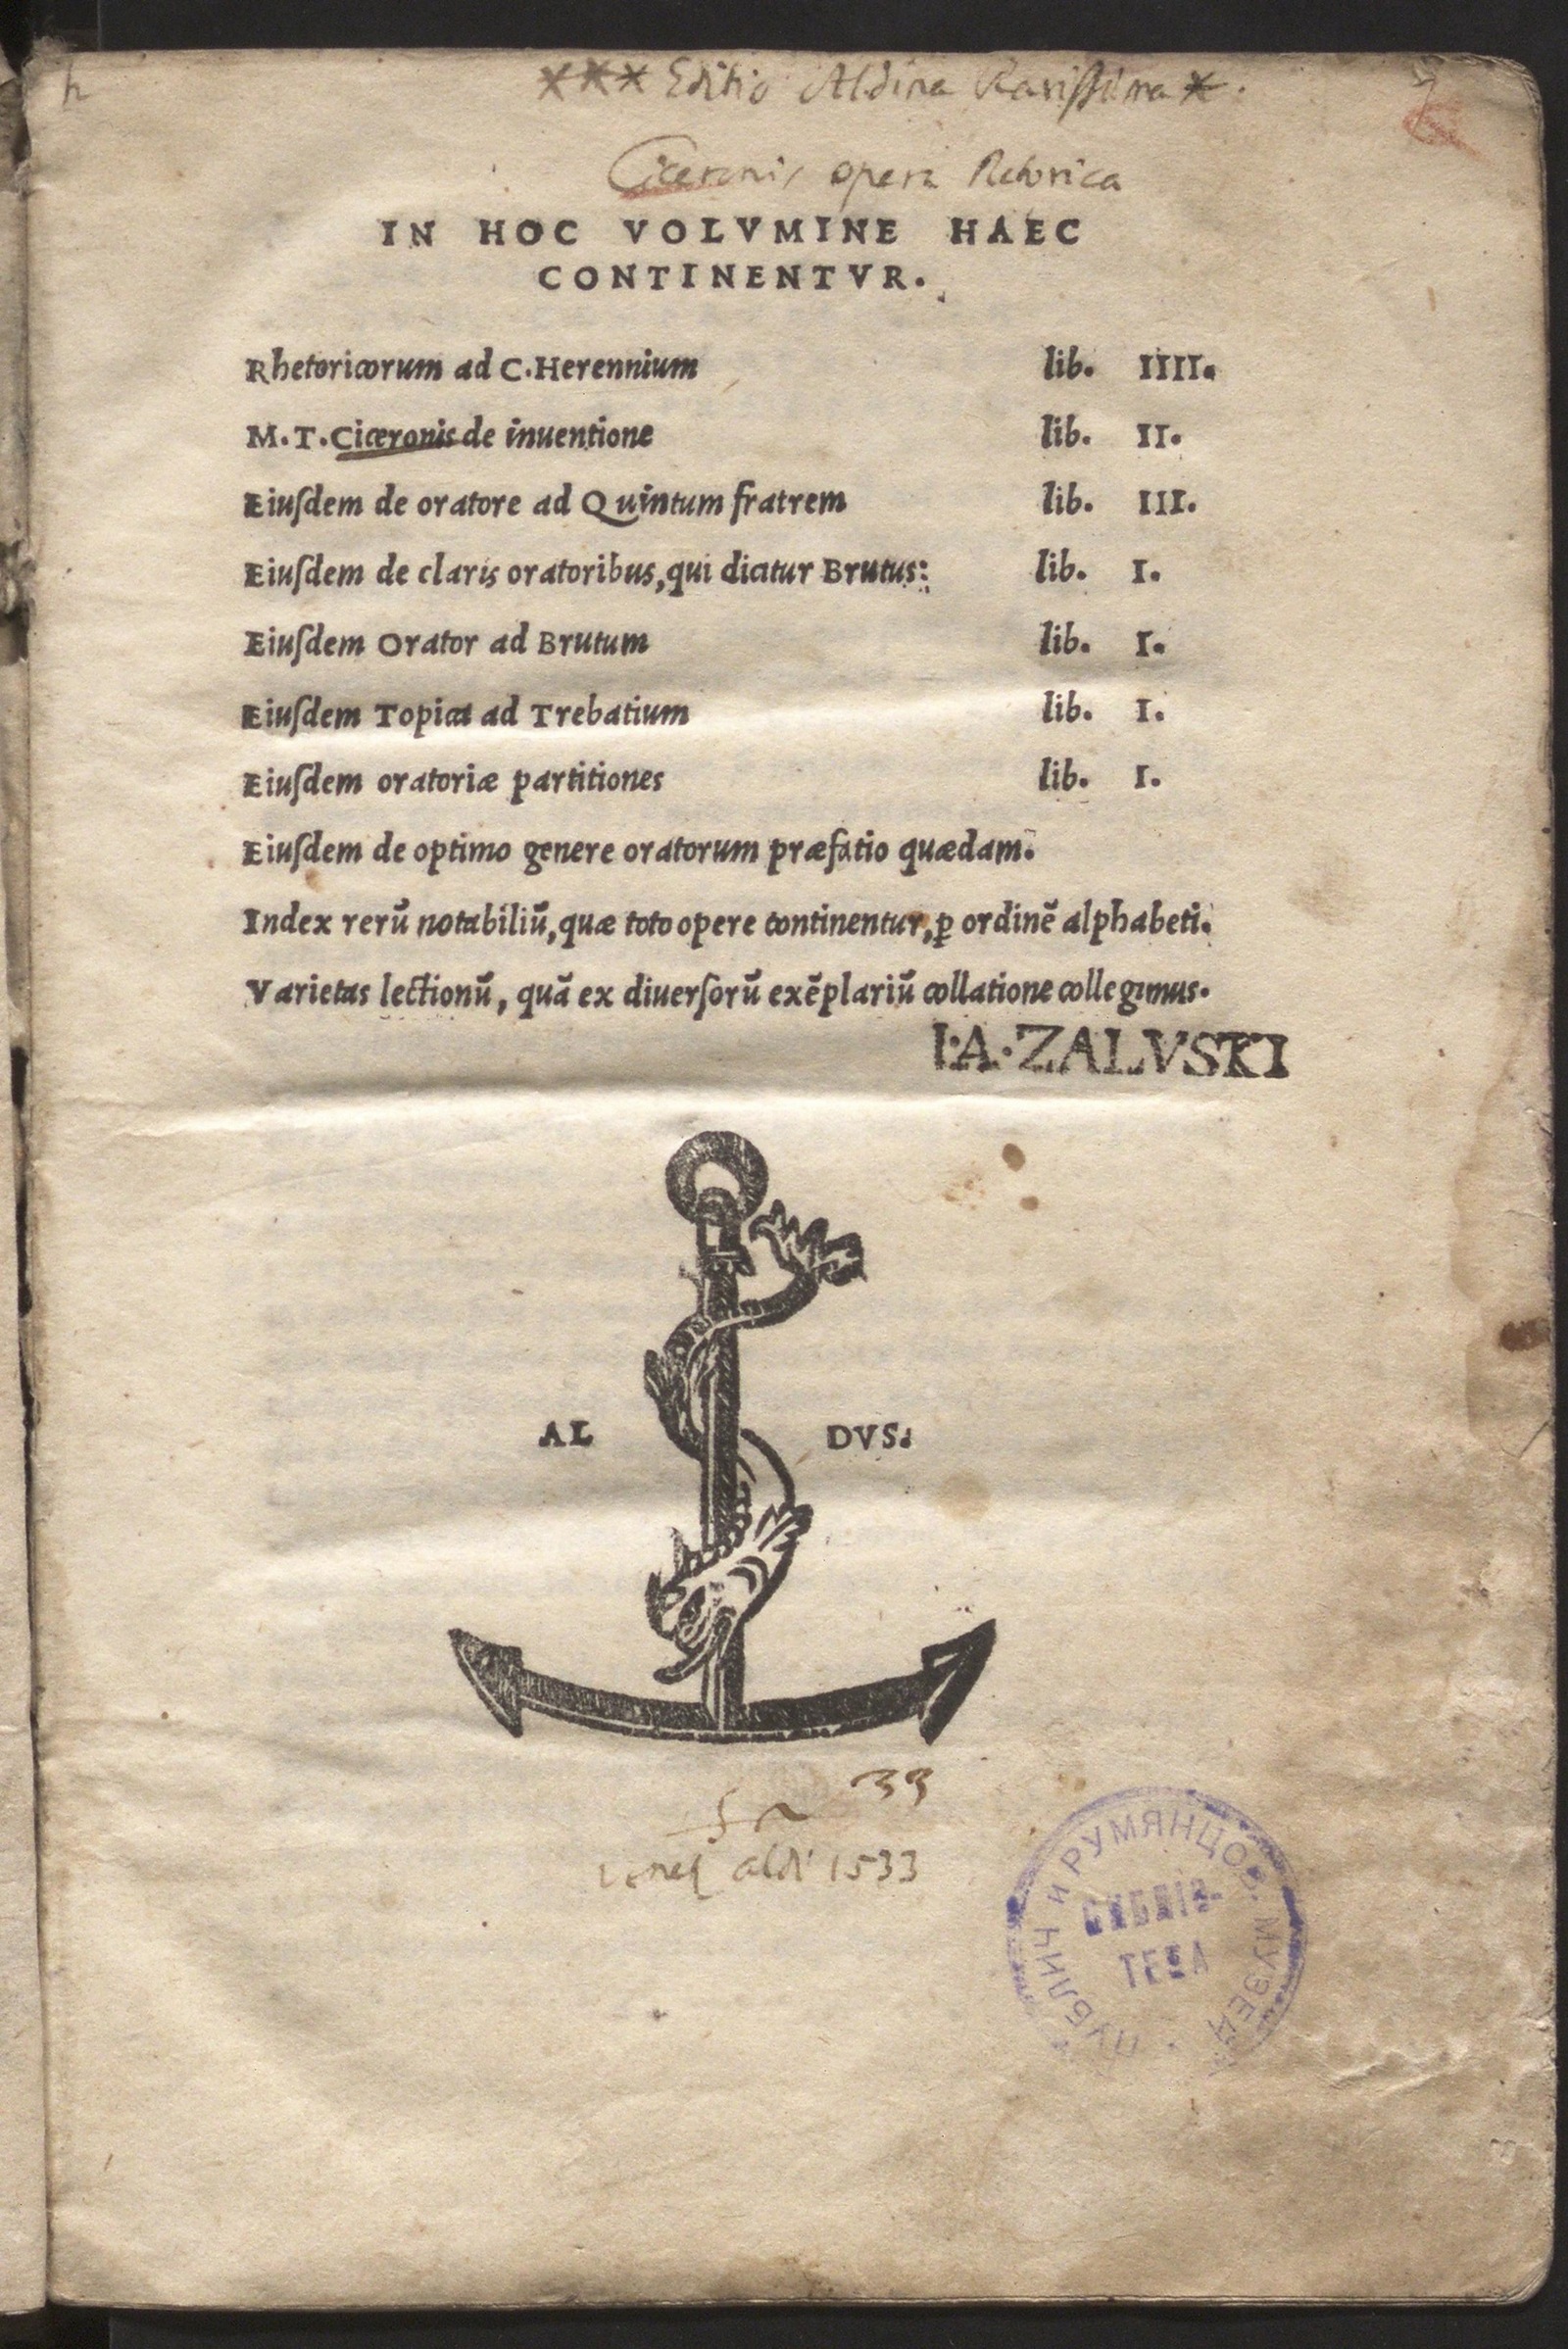 *** Editio Aldina Rarissima *.
Ciceronis opera Retorica
IN HOC VOLVMINE HAEC
CONTINENTVR.
Rhetoricorum ad C. Herennium lib. IIII.
M. T. Ciceronis de inuentione lib. II.
Eiuſdem de oratore ad Quintum fratrem lib. III.
Eiuſdem de claris oratoribus, qui dicitur Brutus: lib. I.
Eiuſdem Orator ad Brutum lib. I.
Eiuſdem Topica ad Trebatium lib. I.
Eiuſdem oratoriæ partitiones lib. I.
Eiuſdem de optimo genere oratorum præfatio quædam.
Index rerū notabiliū, quæ toto opere continentur, ꝑ ordinē alphabeti.
Varietas lectionū, quā ex diuerſorū exēplariū collatione collegimus.
I·A·ZALVSKI
AL DVS.
33
aldi 1533
ПУБЛИЧ И РУМЯНЦОВ. МУЗЕЕВ
БИБЛІО-
ТЕКА